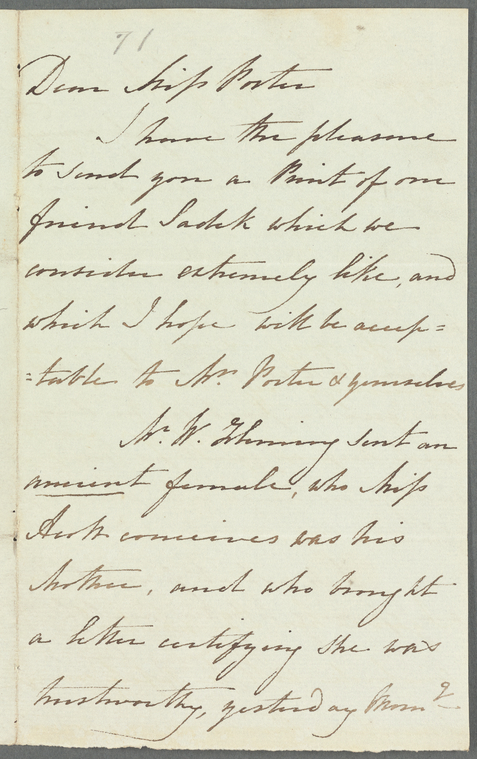 71
Dear Miss Porter
I have the pleasure
to send you a Print of our
friend Sadek which we
consider extremely like, and
which I hope will be accep=
=table to Mrs. Porter & yourselves
Mr. W. Fleming sent an
ancient female, who Miss
conceives was his
Mother, and who brought
a letter certifying she was
trustworthy, yesterday Morng